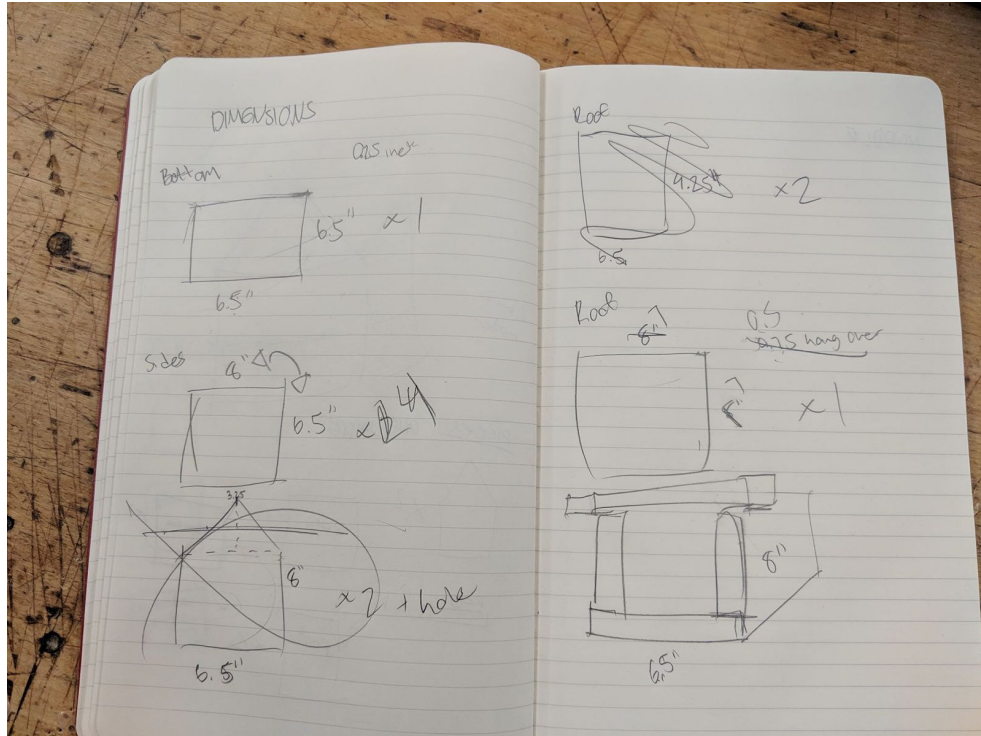 DIMENSIONS
Bottom
6.5" x 1
6.5"
Sides
8"
6.5" x 4
8"
x 2 + hole
6.5"
Roof
x 2
6.5
Roof
8" 7
0.5
hang over
7
8"
x 1
8"
6.5"